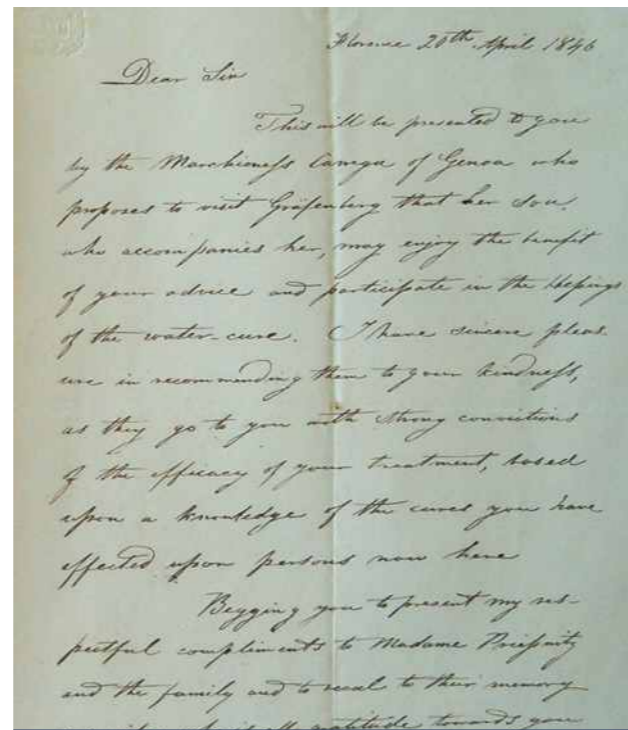 Florence 20th April 1846
Dear Sir
This will be presented to you
by the Marchioness Carrega of Genoa who
proposes to visit Gräfenberg that her son,
who accompanies her, may enjoy the benefit
of your advice and participate in the blessings
of the water-cure. I have sincere pleas
ure in recommending them to your kindness,
as they go to you with strong convictions
of the efficacy of your treatment, based
upon a knowledge of the cures you have
effected upon persons now here
Begging you to present my res-
pectful compliments to Madame Priessnitz
and the family and to recal to their memory
gratitude towards you